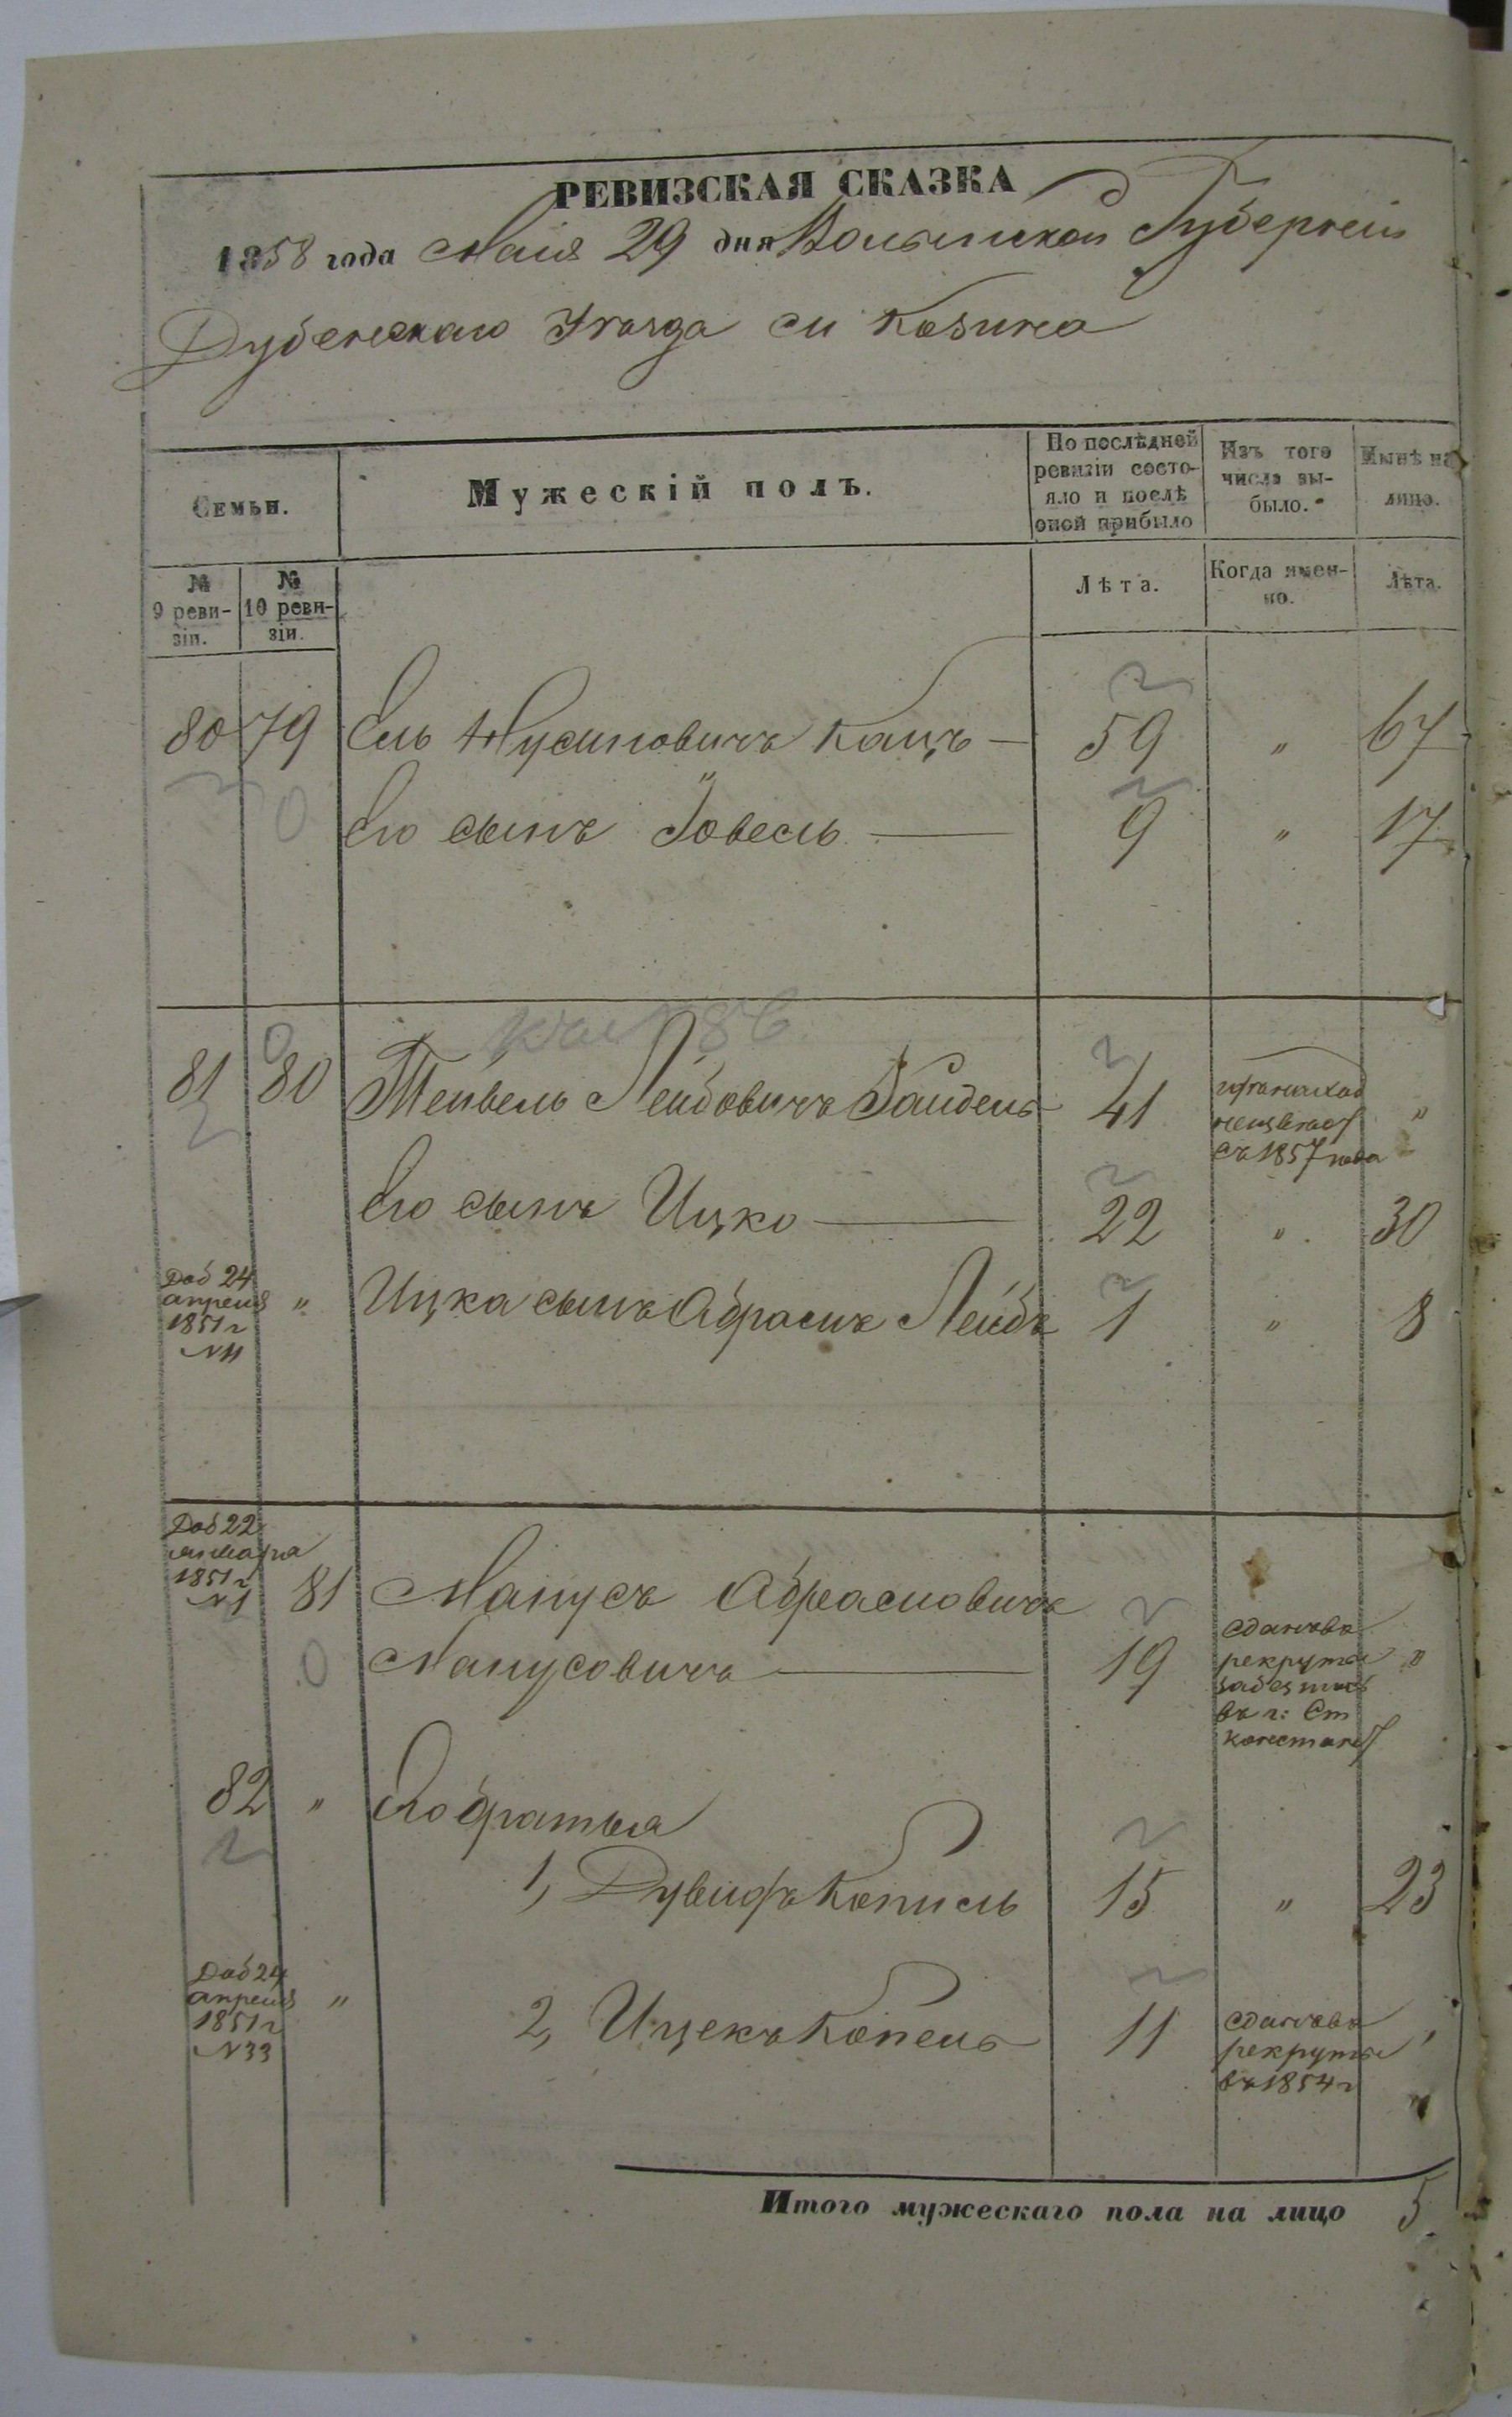 РЕВИЗСКАЯ СКАЗКА
1858 года Маія 29 дня Волынской Губерніи
Дубенскаго Уезда м Козина
Семьи.
Мужескій полъ.
По послѣдней ревизіи состо-яло и послѣ оной прибыло
Изъ того числа вы-было.
Нынѣ на лицо.
№ 9 реви-зіи.
№ 10 реви-зіи.
Лѣта.
Когда имен-но.
Лѣта.
80 79 Ель Нусиновичъ Кацъ — 59 " 67
Его сынъ Іовель — 9 " 17
81 80 Тейвель Лейбовичъ 41 " 
съ 1857 года
Его сынъ Ицко — 22 " 30
Доб 24
апреля "
1851 г
Ицка сынъ Абрамъ Лейбъ 1 " 8
Доб 22
января
1851 г
N 1
81 Манусъ Абрамовичъ
Манусовичъ — 19 "
сданъ въ
рекруты
въ г: Ст
82 " Его братья
1, Копель 15 " 23
Доб 24
апреля "
1851 г
N 33
2, Ицекъ Копель 11
сданъ въ
рекруты "
въ 1854 г
Итого мужескаго пола на лицо 5